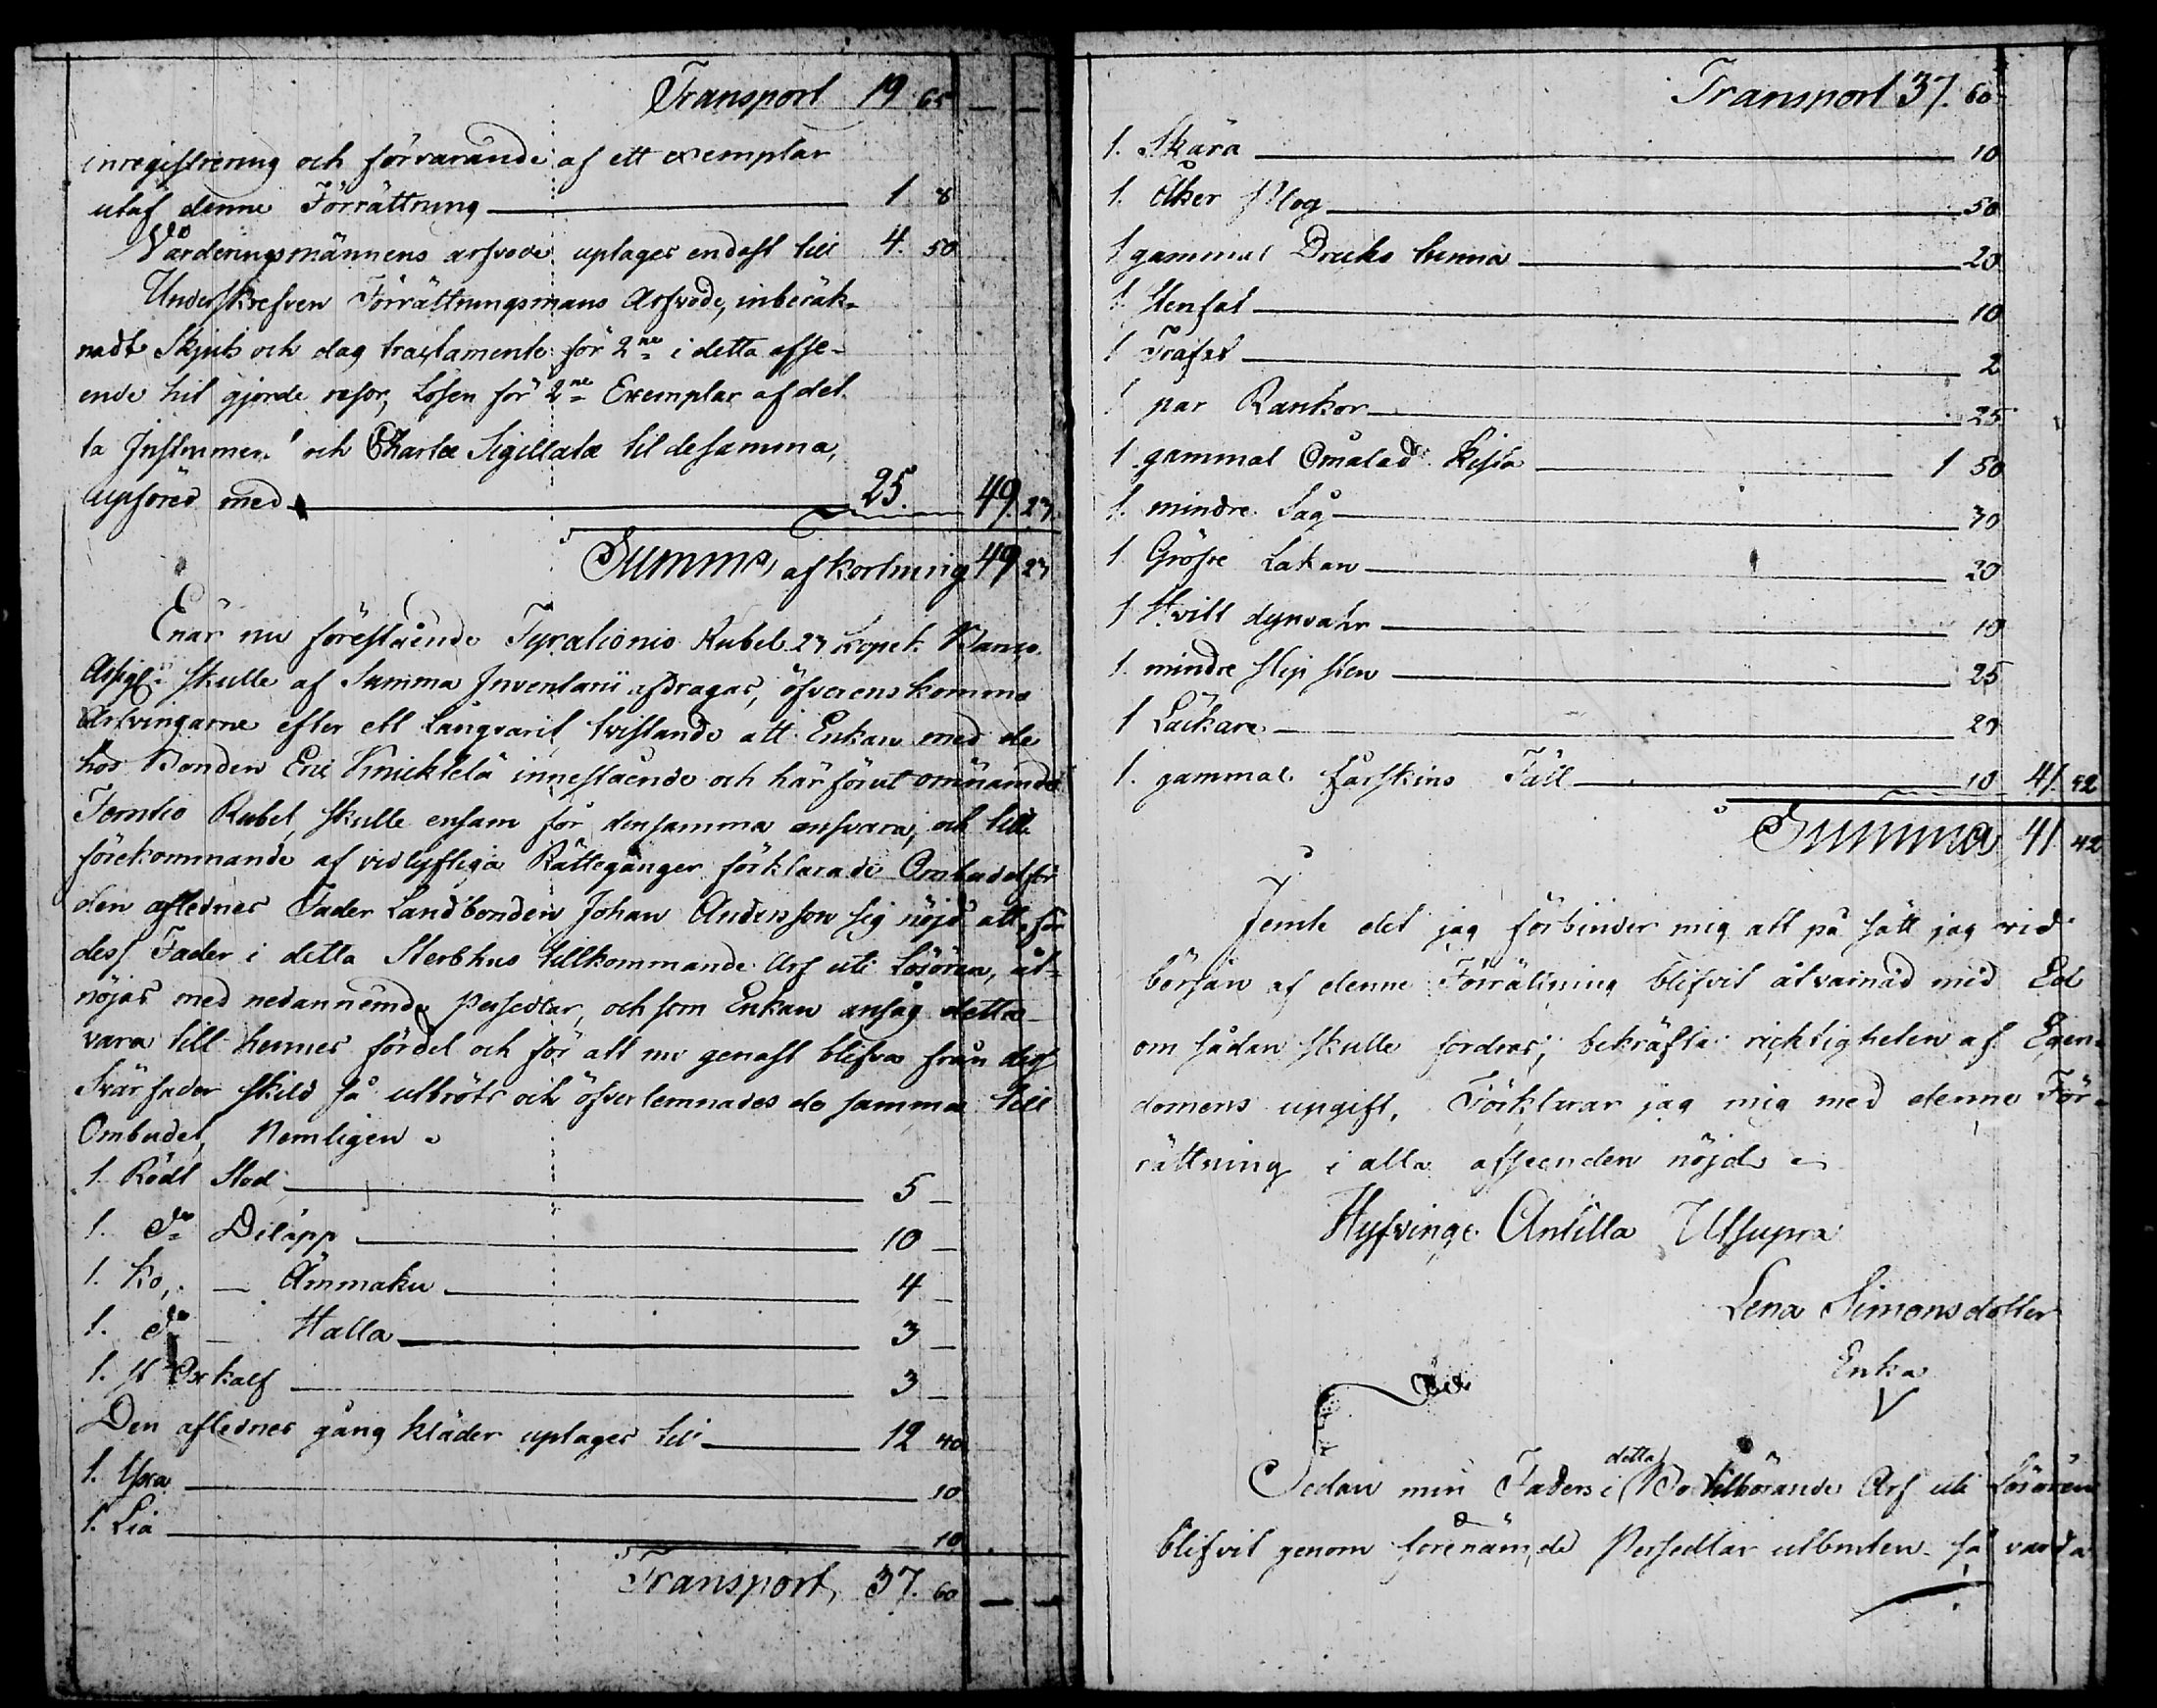 Transport 19 65 — —
inregistrering och förvarande af ett exemplar
utaf denne Förrättning — 1 8
Värderingsmännens arfvode uptages endast till 4. 50
Underskrefven Förrättningsmans Arfvode, inberäk-
nadt Skjuts och dag tractamente för 2ne i detta afse-
ende hit gjorde resor, Lösen för 2ne Exemplar af det-
ta och Charta Sigillata til desamma,
upföres med — 25. 49. 23
Summa afkortning 49 23
Enär nu förestående Fyrationio Rubel 23 Kopek Banco
skulle af Summa Inventarii afdragas, öfverens kommo
Arfvingarne efter ett långvarit tvistande att Enkan med de
hos Bonden Eric innestående och här förut omnämnde
Rubel, skulle ensam för densamma ansvara, och till
förekommande af vidlyftiga Rättegånger förklarade Ombudet för
den aflednes Fader Landbonden Johan Andersson sig nöjd att för
dess Fader i detta Sterbhus tillkommande Arf uti Lösören, åt-
nöjas med nedannemde Persedlar, och som Enkan ansåg detta
vara till hennes fördel och för att nu genast blifva från dess
Svärfader skild så utbröts och öfverlemnades de samma till
Ombudet, Nemligen
1. Rödt Stod — 5 —
1. do — 10 —
1. Ko, — Ämmaku — 4 —
1. do — Halla — 3 —
1. st Oxkalf — 3 —
Den aflednes gång kläder uptages till — 12 40
1. Yxa — 10
1. Lia — 10
Transport 37. 60 — —
Transport 37. 60
1. Skära — 10
1. Åker Plog — 50
1 gammal Dricks tunna — 20
1 Stenfat — 10
1 Träfat — 2
1 par Rankor — 25
1 gammal Omålad Kista — 1 50
1. mindre Såg — 30
1 Gröfre Lakan — 20
1 Hvitt dynvahr — 10
1. mindre Slip sten — 25
1 — 20
1. gammal Fårskins Fäll — 10 41. 42
Summa 41 42
Jemte det jag förbinder mig att på sätt jag vid
början af denne Förrättning blifvit åtvarnad med Ed
om sådan skulle fordras, bekräfta ricktigheten af Egen-
domens upgift, Förklarar jag mig med denne För-
rättning i alla afseenden nöjd
Hyfvinge Antilla Utsupra
Lena Simonsdotter
Enka
Sedan min Faders i detta Bo tillhörande Arf uti Lösören
blifvit genom förenämnde Persedlar utbruten så